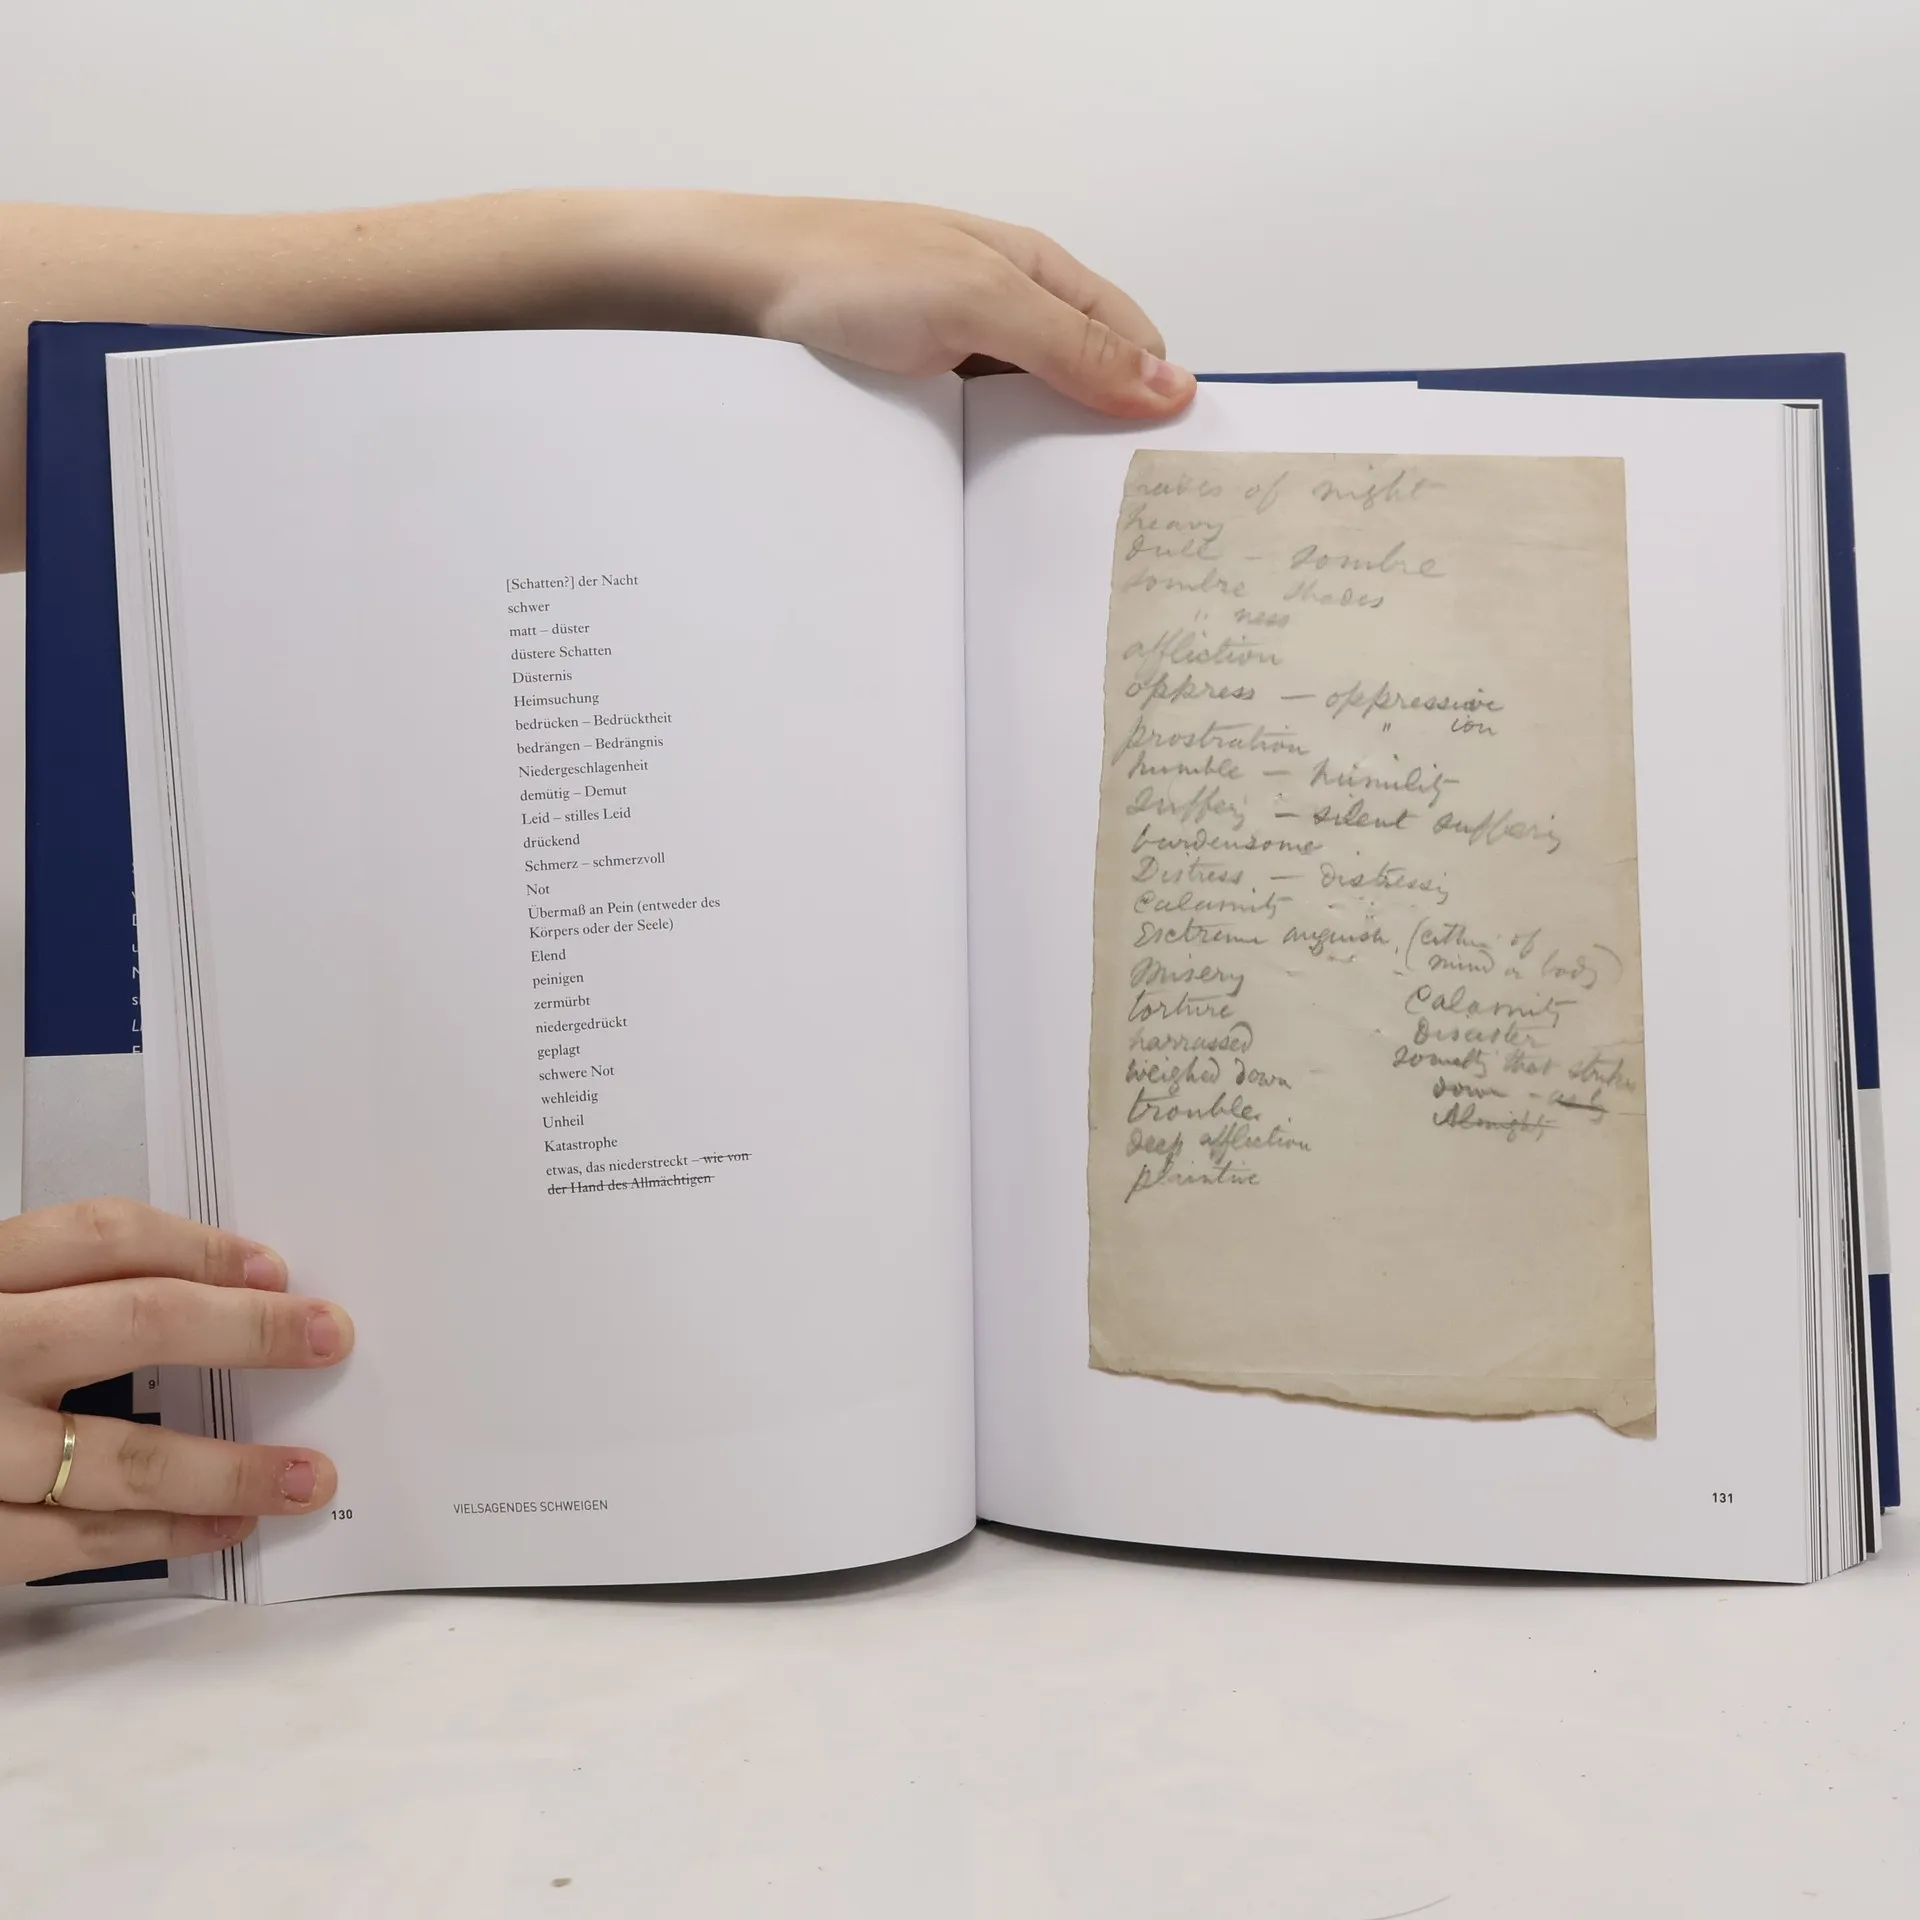 [Schatten?] der Nacht
schwer
matt – düster
düstere Schatten
Düsternis
Heimsuchung
bedrücken – Bedrücktheit
bedrängen – Bedrängnis
Niedergeschlagenheit
demütig – Demut
Leid – stilles Leid
drückend
Schmerz – schmerzvoll
Not
Übermaß an Pein (entweder des
Körpers oder der Seele)
Elend
peinigen
zermürbt
niedergedrückt
geplagt
schwere Not
wehleidig
Unheil
Katastrophe
etwas, das niederstreckt – wie von
der Hand des Allmächtigen
130
VIELSAGENDES SCHWEIGEN
of night
heavy
dull – sombre
sombre shades
" ness
affliction
oppress — oppressive
" ion
prostration
humble — humility
– silent
burdensome
Distress —
Calamity
Extreme (either of
mind or body)
Misery
torture
harrassed
weighed down
trouble
deep affliction
plaintive
Calamity
Disaster
that strikes
down –
131
9